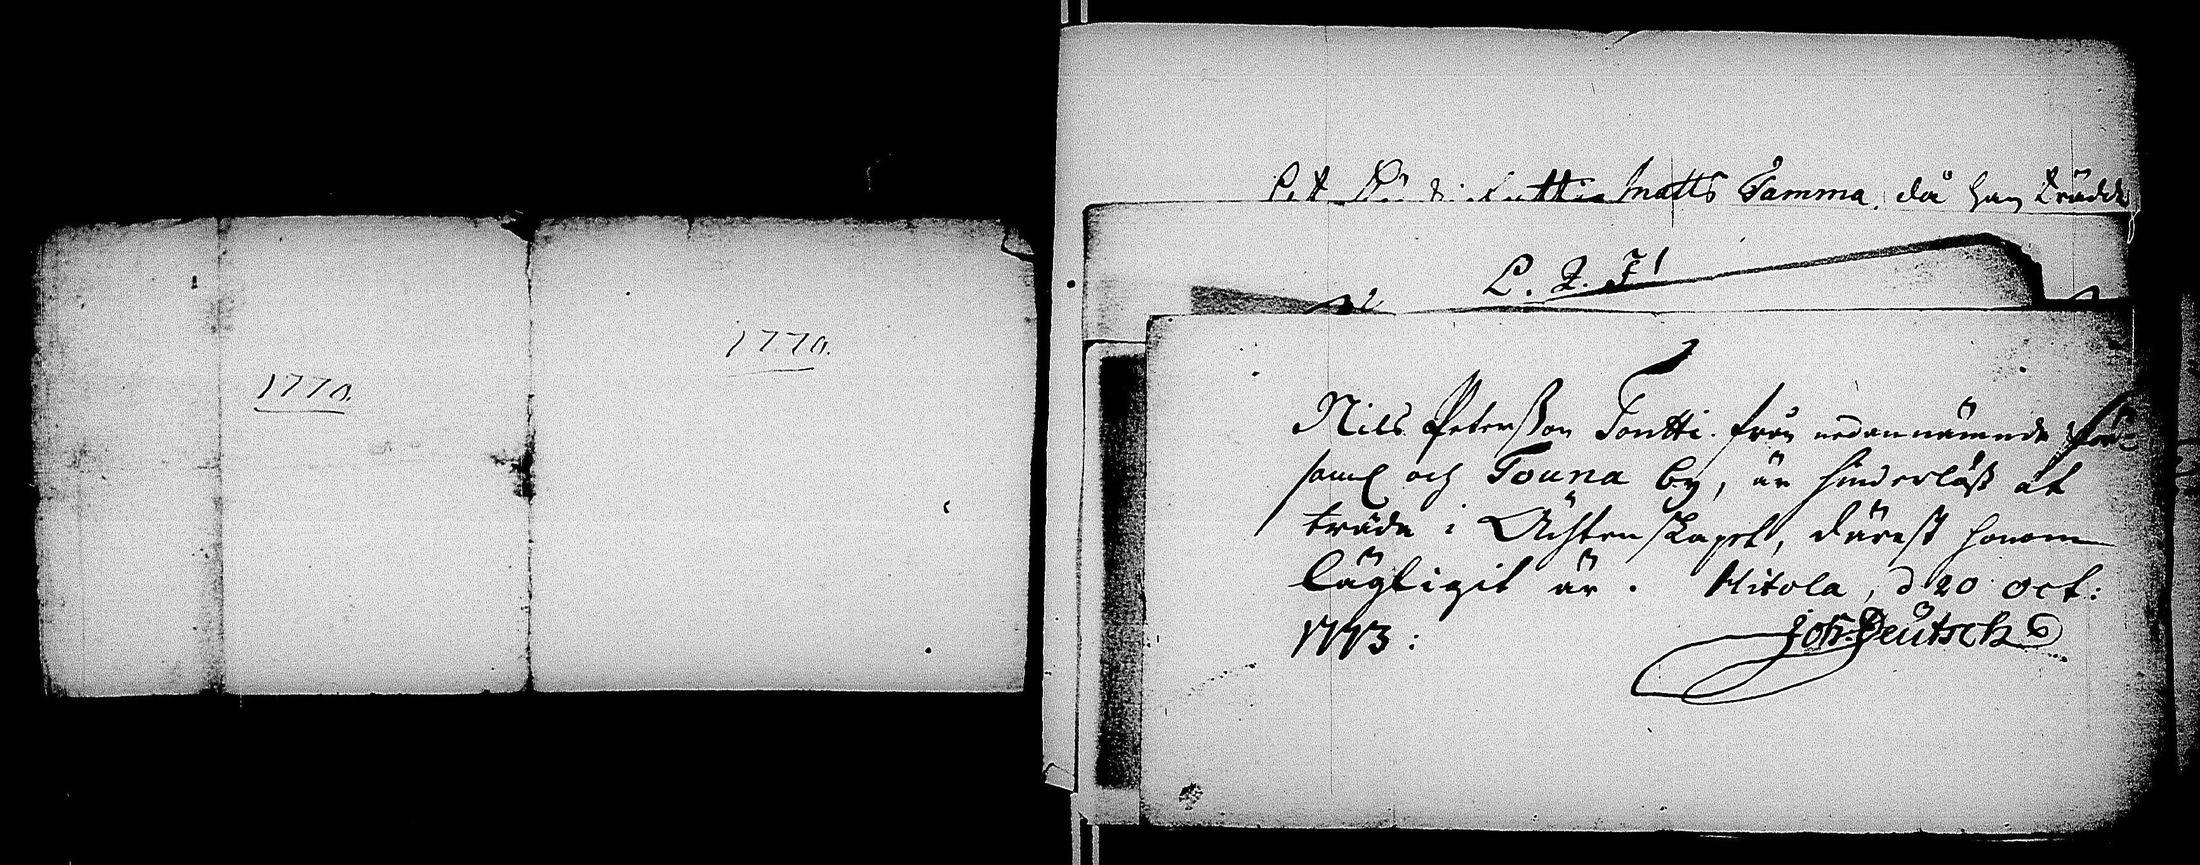 1770.
1770.
Matts Tamma, då han trädde
L. J. J.
Nils Petersson Tontti från nedannämnde för=
saml och Touna by, är hinderlöß at
träda i Ächtenskapet, därest honom
lägligit är. Hitola, d 20 Oct:
1773:
Joh. Deutsch